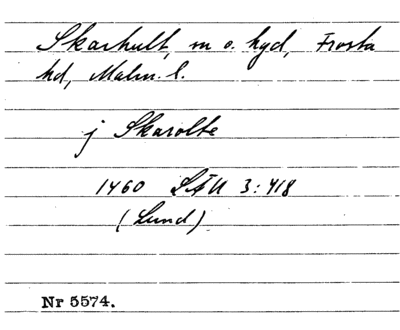 Skarhult, m o. hgd, Frosta
hd, Malm. l.
j Skarolte
1460 SÄU 3:418
(Lund)
Nr 5574.